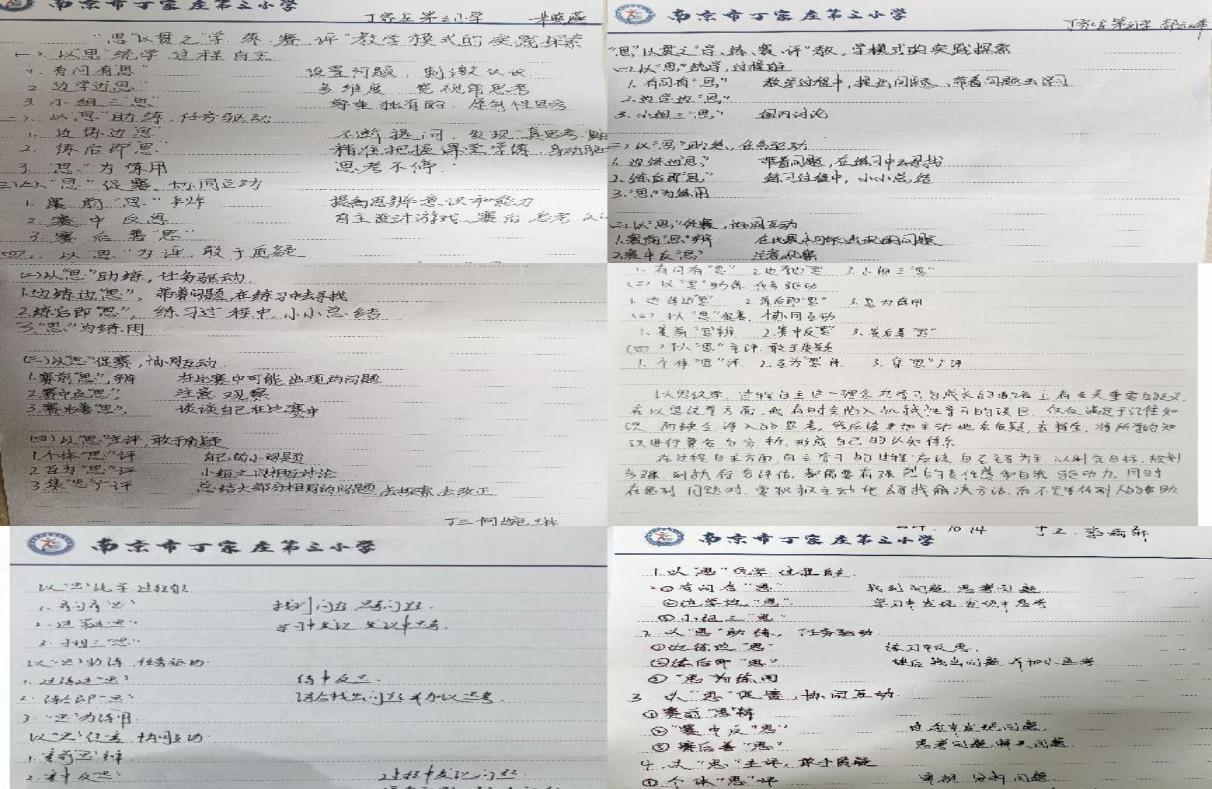 南京市丁家庄第三小学
丁家庄第三小学
"思"以贯之"学、练、赛、评"教学模式的实践探索
(一)以"思"统学 过程自主
1. 有问有"思" 设置问题,刺激认识
2. 边学边"思" 多维度、宽视角思考
3. 小组三"思" 原创性思考
(二)以"思"助练,任务驱动
1. 边练边"思" 不断提问、发现
2. 练后即"思" 精准把握课堂学情
3. "思"为练用 思考不停.
(三)以"思"促赛 协同互动
1. 赛前"思"辨 提高思辨意识和能力
2. 赛中反"思" 自主设计游戏、赛后思考
3. 赛后善"思"
四、以"思"为评,敢于质疑
南京市丁家庄第三小学
"思"以贯之"学、练、赛、评"教、学模式的实践探索
(一)以"思"统学,过程
1. 有问有"思" 教学过程中,提出问题,带着问题去学习
2. 边学边"思"
3. 小组三"思" 组内讨论
(二)以"思"助练,任务驱动
1. 边练边"思" 带着问题,在练习中去寻找
2. 练后即"思" 练习过程中,小小总结
3. "思"为练用
(三)以"思"促赛,协同互动
1. 赛前"思"辨 在比赛中可能出现的问题
2. 赛中反"思" 注意观察
(二)以"思"助练,任务驱动
1. 边练边"思",带着问题,在练习中去寻找
2. 练后即"思",练习过程中,小小总结
3. "思"为练用
(三)以"思"促赛,协同互动
1. 赛前"思"辨 在比赛中可能出现的问题
2. 赛中反"思", 注意观察
3. 赛后善"思", 谈谈自己在比赛中
(四)以"思"主评,敢于质疑
1. 个体"思"评 自己的小问题
2. 互为"思"评 小组之间相互讨论
3. 集"思"广评 总结大部分相同的问题,去探索,去改正
1. 有问有"思" 2. 边学边"思" 3. 小组三"思"
(二)以"思"助练 任务驱动
1. 边练边"思" 2. 练后即"思" 3. 思为练用
(三)以"思"促赛 协同互动
1. 赛前"思"辨 2. 赛中反"思" 3. 赛后善"思"
(四)以"思"主评 敢于质疑
1. 个体"思"评 2. 互为"思"评 3. 集"思"广评
以思统学,过程自主这一理念在学习与成长的道路上有至关重要的意义
在以思统学方面,我有时会陷入机械性学习的误区,仅仅满足于记住知
识,而缺乏深入的思考,然后该更加主动地去质疑,去探索,将所学的知
识进行整合与分析,形成自己的认知体系
在过程自主方面,自主学习的过程应该自己主导,从制定目标、规划
步骤,到执行与评估,都需要有强烈的责任感和自我驱动力,同时
在遇到问题时,要积极主动地去寻找解决方法,而不是等待别人的帮助
南京市丁家庄第三小学
以"思"统学 过程自主
1. 有问有"思" 找到问题 思考问题.
2. 边学边"思" 学习中发现 发现中思考.
3. 小组三"思"
以"思"助练 任务驱动
1. 边练边"思" 练中反思.
2. 练后即"思" 练后找出问题 并加以思考.
3. "思"为练用
以"思"促赛 协同互动
1. 赛前"思"辨
2. 赛中反"思" 过程中发现问题.
10.14
南京市丁家庄第三小学
1. 以"思"统学 过程自主.
①有问有"思" 找到问题 思考问题
②边学边"思" 学习中发现 发现中思考
③小组三"思"
2. 以"思"助练,任务驱动
①边练边"思" 练习中反思.
②练后即"思" 练后找出问题 并加以思考
③"思"为练用
3. 以"思"促赛,协同互动
①赛前"思"辨
②"赛中反"思" 自赛中发现问题.
③赛后善"思" 思考问题,解决问题.
4. 以"思"主评,敢于质疑
①个体"思"评 分析问题